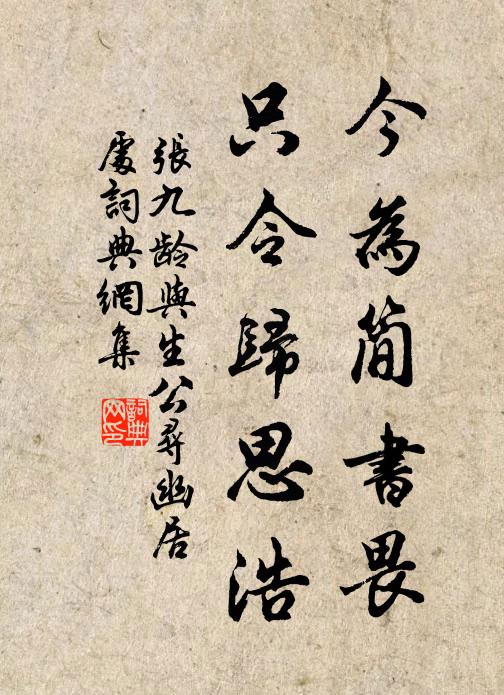 今為簡書畏
只令歸思浩
張九龄與生公尋幽居
處詞典網集
詞典网印